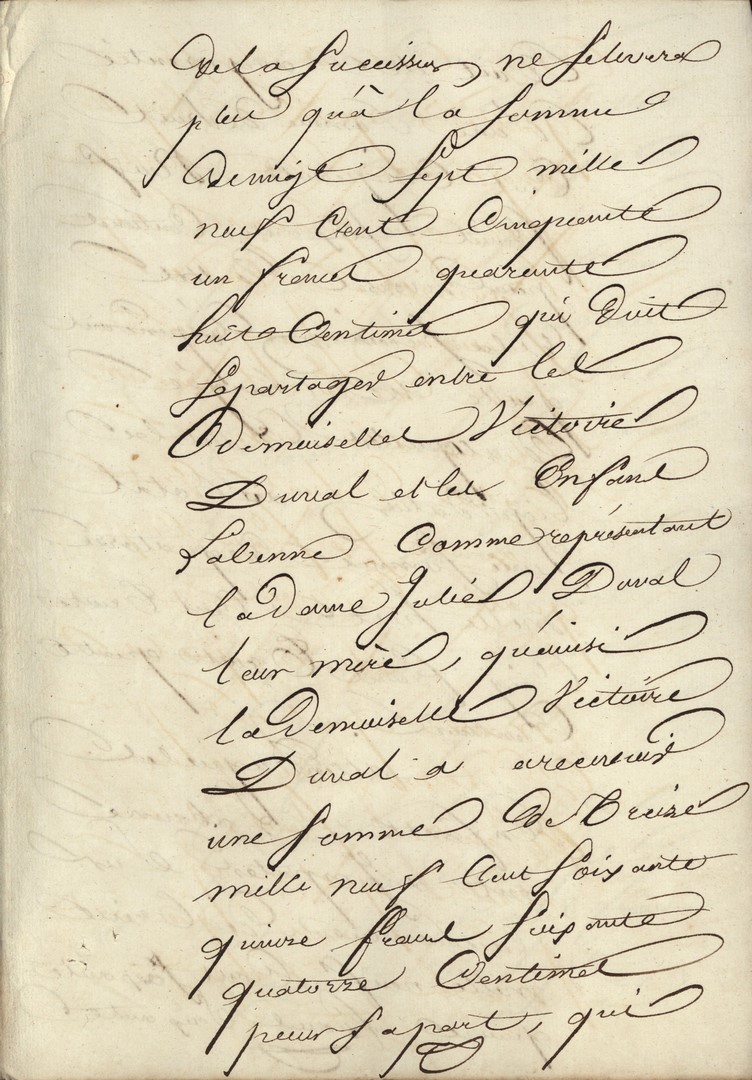 de la succession neselevera
plus qu'à la somme
devingt sept mille
neuf cent cinquante
un francs quarante
huit centimes qui doit
separtager entre les
demoiselles Victoire
Duval et les Enfans
Labenne comme représentant
la dame Julie Duval
leur mère, qu'ainsi
la demoiselle Victoire
Duval a arecevoir
une somme de treize
mille neuf cent soixante
quinze francs soixante
quatorze centimes
pour sapart, qui